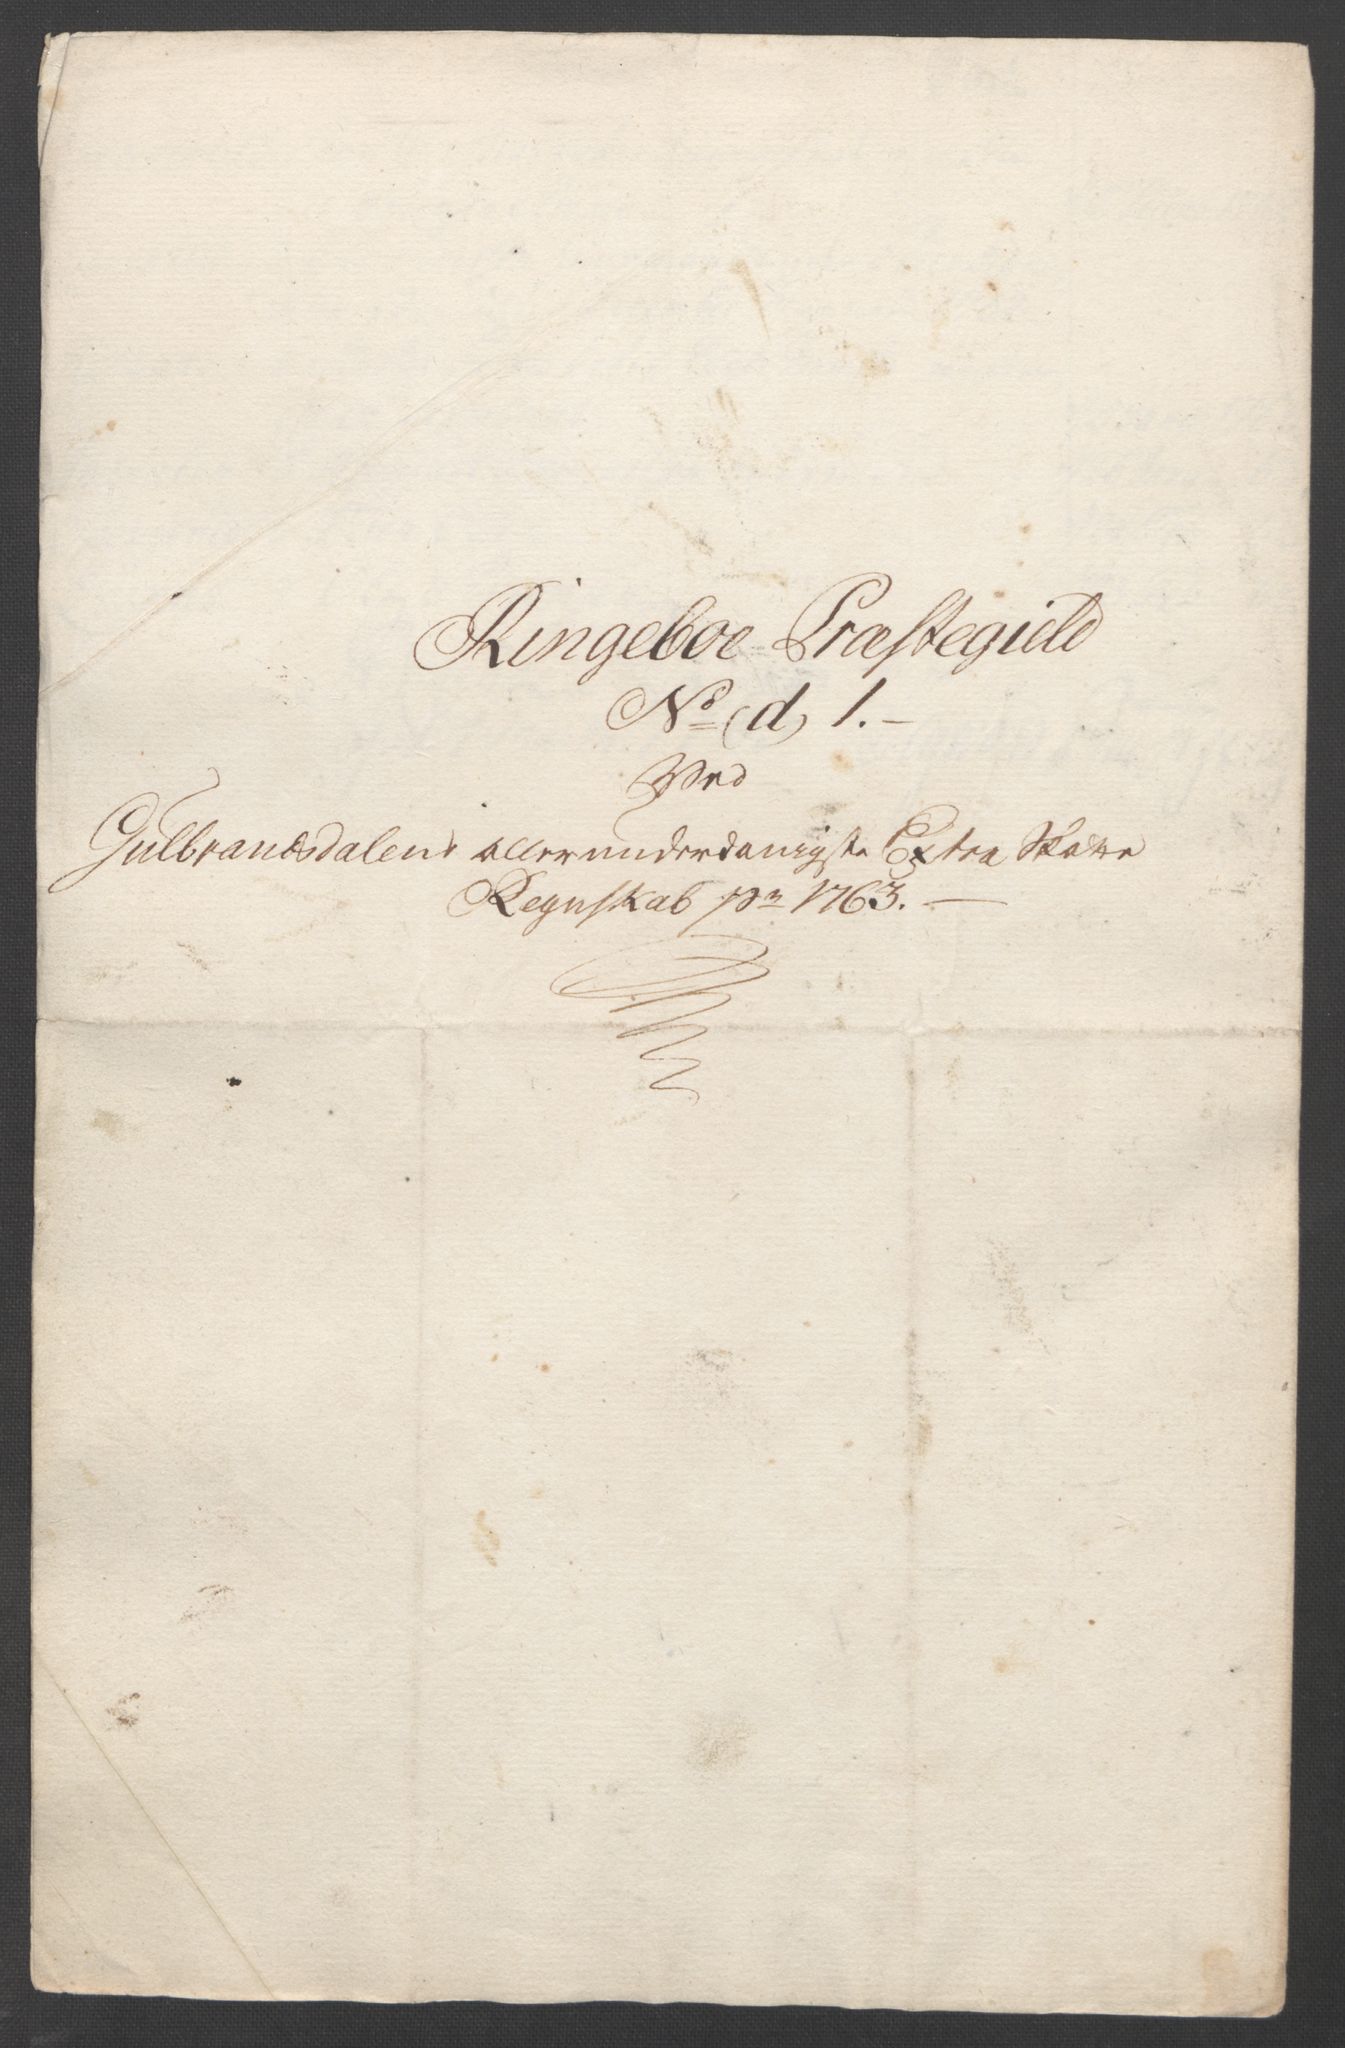 Ringeboe Præstegield
No (d) 1.-
Ved
Gulbrandsdalens allerunderdanigste Extra Skatte
Regnskab pr 1763.-